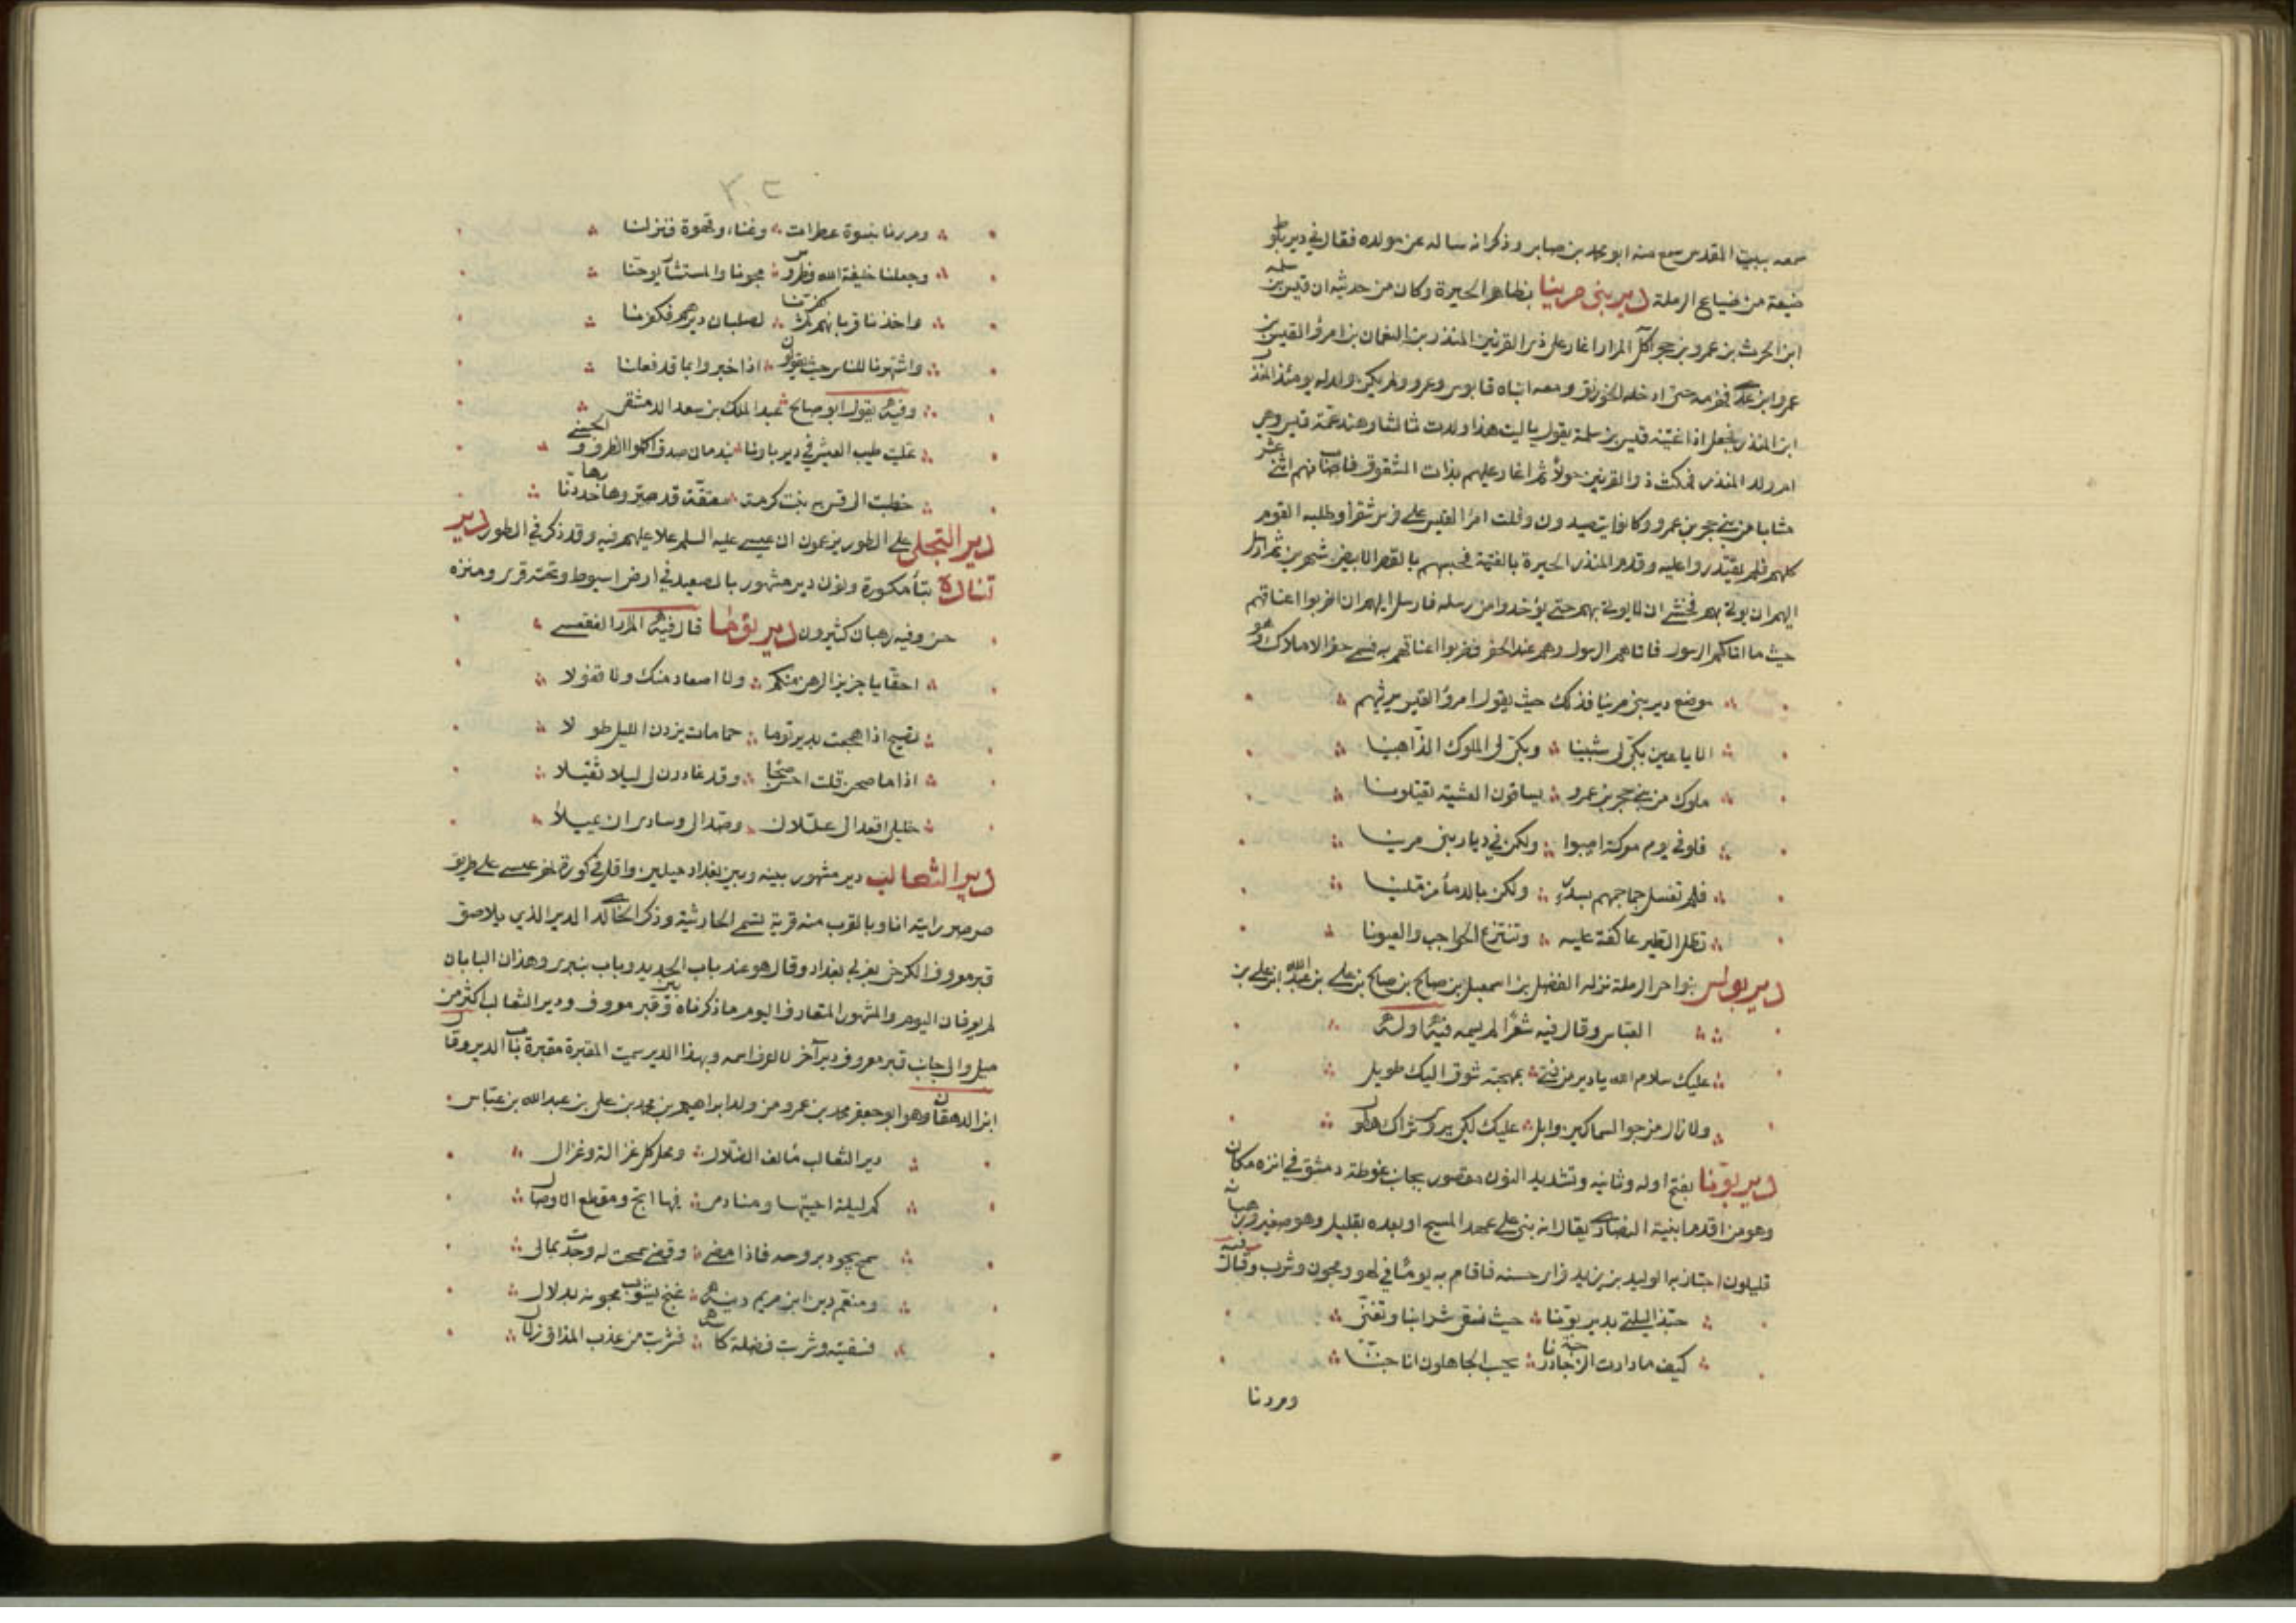 سمعه ببيت المقدس سمع منه ابو محمد بن صابر وذكر انه ساله عن مولده فقال في دير بلوط
ضيعة من ضياع الرملة دير بني مرينا بظاهر الحيرة وكان من حديثه ان قيس بن سلمة
ابن الحرث بن عمرو بن حجر آكل المرار اغار على ذي القرنين المنذر بن النعمان بن امرؤ القيس بن
عمرو ابن عدي فهزمه حتى ادخله الخورنق ومعه ابناه قابوس وعمرو ولم يكن ولد له يومئذ المنذر
ابن المنذر فجعل اذا غشيه قيس بن سلمة يقول يا ليت هذا ولدت ثالثا وهند عمة قيس وهي
ام ولد المنذر فمكث ذو القرنين حولا ثم اغار عليهم بذات الشقوق فاصاب منهم اثني عشر
شابا من بني حجر بن عمرو وكانوا يتصيدون وفلت امرا القيس على فرس شقرا وطلبه القوم
كلهم فلم يقتدروا عليه وقدم المنذر الحيرة بالفتية فحبسهم بالقصر الابيض شهرين ثم ارسل
اليهم ان يوتى بهم فخشي ان لا يوتى بهم حتى يؤخذوا من رسله فارسل اليهم ان اضربوا اعناقهم
حيث ما اتاكم الرسول فاتاهم الرسول وهم عند الجفر فضربوا اعناقهم به فسمي جفر الاملاك وهو
موضع دير بني مرينا فذلك حيث يقول امرؤ القيس يرثيهم
الا يا عين بكي لي شنينا وبكي لي الملوك الذاهبينا
ملوك من بني حجر بن عمرو يساقون العشية يقتلونا
فلو في يوم معركة اصيبوا ولكن في ديار بني مرينا
فلم تغسل جماجمهم بسدر ولكن بالدماء مزملينا
تظل الطير عاكفة عليه وتنتزع الحواجب والعيونا
دير بولس بنواحي الرملة نزله الفضل بن اسمعيل بن صالح بن صالح بن علي بن عبد الله ابن علي بن
العباس وقال فيه شعرا لم يسمه فيه اوله
عليك سلام الله يا دير من فتى بمهجته شوق اليك طويل
ولا زال من جو السماكين وابل عليك لكي يروى ثراك هطول
دير بونا بفتح اوله وثانيه وتشديد النون مقصور بجانب غوطة دمشق في انزه مكان
وهو من اقدم ابنية النصارى يقال انه بني على عهد المسيح او بعده بقليل وهو صغير ورهبانه
قليلون اجتاز به الوليد بن يزيد فراى حسنه فاقام به يوما في لهو ومجون وشرب وقال فيه
حبذا ليلتي بدير بونا حيث نسقى شرابنا ونغنى
كيف ما دارت الزجاجة درنا يحسب الجاهلون انا جننا
ومررنا
٣٠٢
ومررنا بنسوة عطرات وغناء وقهوة فنزلنا
وجعلنا خليفة الله فطروس مجونا والمستشار يوحنا
واخذنا قربانهم ثم كفرنا لصلبان ديرهم فكفرنا
واشتهرنا للناس حيث يقولون اذا خبروا بما قد فعلنا
وفيه يقول ابو صالح عبد الملك بن سعد الدمشقي
تمليت طيب العيش في دير باونا بندمان صدق اكملوا الظرف والحسنى
خطبت الى قس به بنت كرمة معتقة قد صيروا خدرها دنا
دير التجلى على الطور يزعمون ان عيسى عليه السلم علا عليهم فيه وقد ذكر في الطور دير
تنادة بتاء مكسورة ونون دير مشهور بالصعيد في ارض اسيوط وتحته قرى ومنزه
حسن وفيه رهبان كثيرون دير توما قال فيه المرار الفقعسي
احقا يا حزيز الرهن منكم ولا اصعاد منك ولا قفولا
تصيح اذا هجعت بدير توما حمامات يزدن الليل طولا
اذا ما صحن قلت احس صبحا وقد غادرن لي ليلا ثقيلا
خليلي اقعدا لي عللاني وصدا لي وسادى ان عيلا
دير الثعالب دير مشهور بينه وبين بغداد ميلين واقل في كورة نهر عيسى على طريق
صرصر رايته انا وبالقرب منه قرية تسمى الحارثية وذكر الخالدى الدير الذي يلاصق
قبر معروف الكرخي بغربي بغداد وقال هو عند باب الحديد وباب بنبرى وهذان البابان
لم يعرفان اليوم والمشهور المتعارف اليوم ما ذكرناه وبين قبر معروف ودير الثعالب اكثر من
ميل والى جانب قبر معروف دير آخر لا اعرف اسمه وبهذا الدير سميت المقبرة مقبرة باب الدير وقال
ابن الدهقان وهو ابو جعفر محمد بن عمرو من ولد ابراهيم بن محمد بن علي بن عبد الله بن عباس
دير الثعالب مألف الضلال ومحل كل غزالة وغزال
كم ليلة احييتها ومنادمى فيها ابح ومقطع الاوصال
سمح يجود بروحه فاذا مضى وقضى سمحت له وجدت بمالى
ومنعم دين ابن مريم دينه غنج يشوب مجونه بدلال
فسقيته وشربت فضلة كاسه فشربت من عذب المذاق زلال